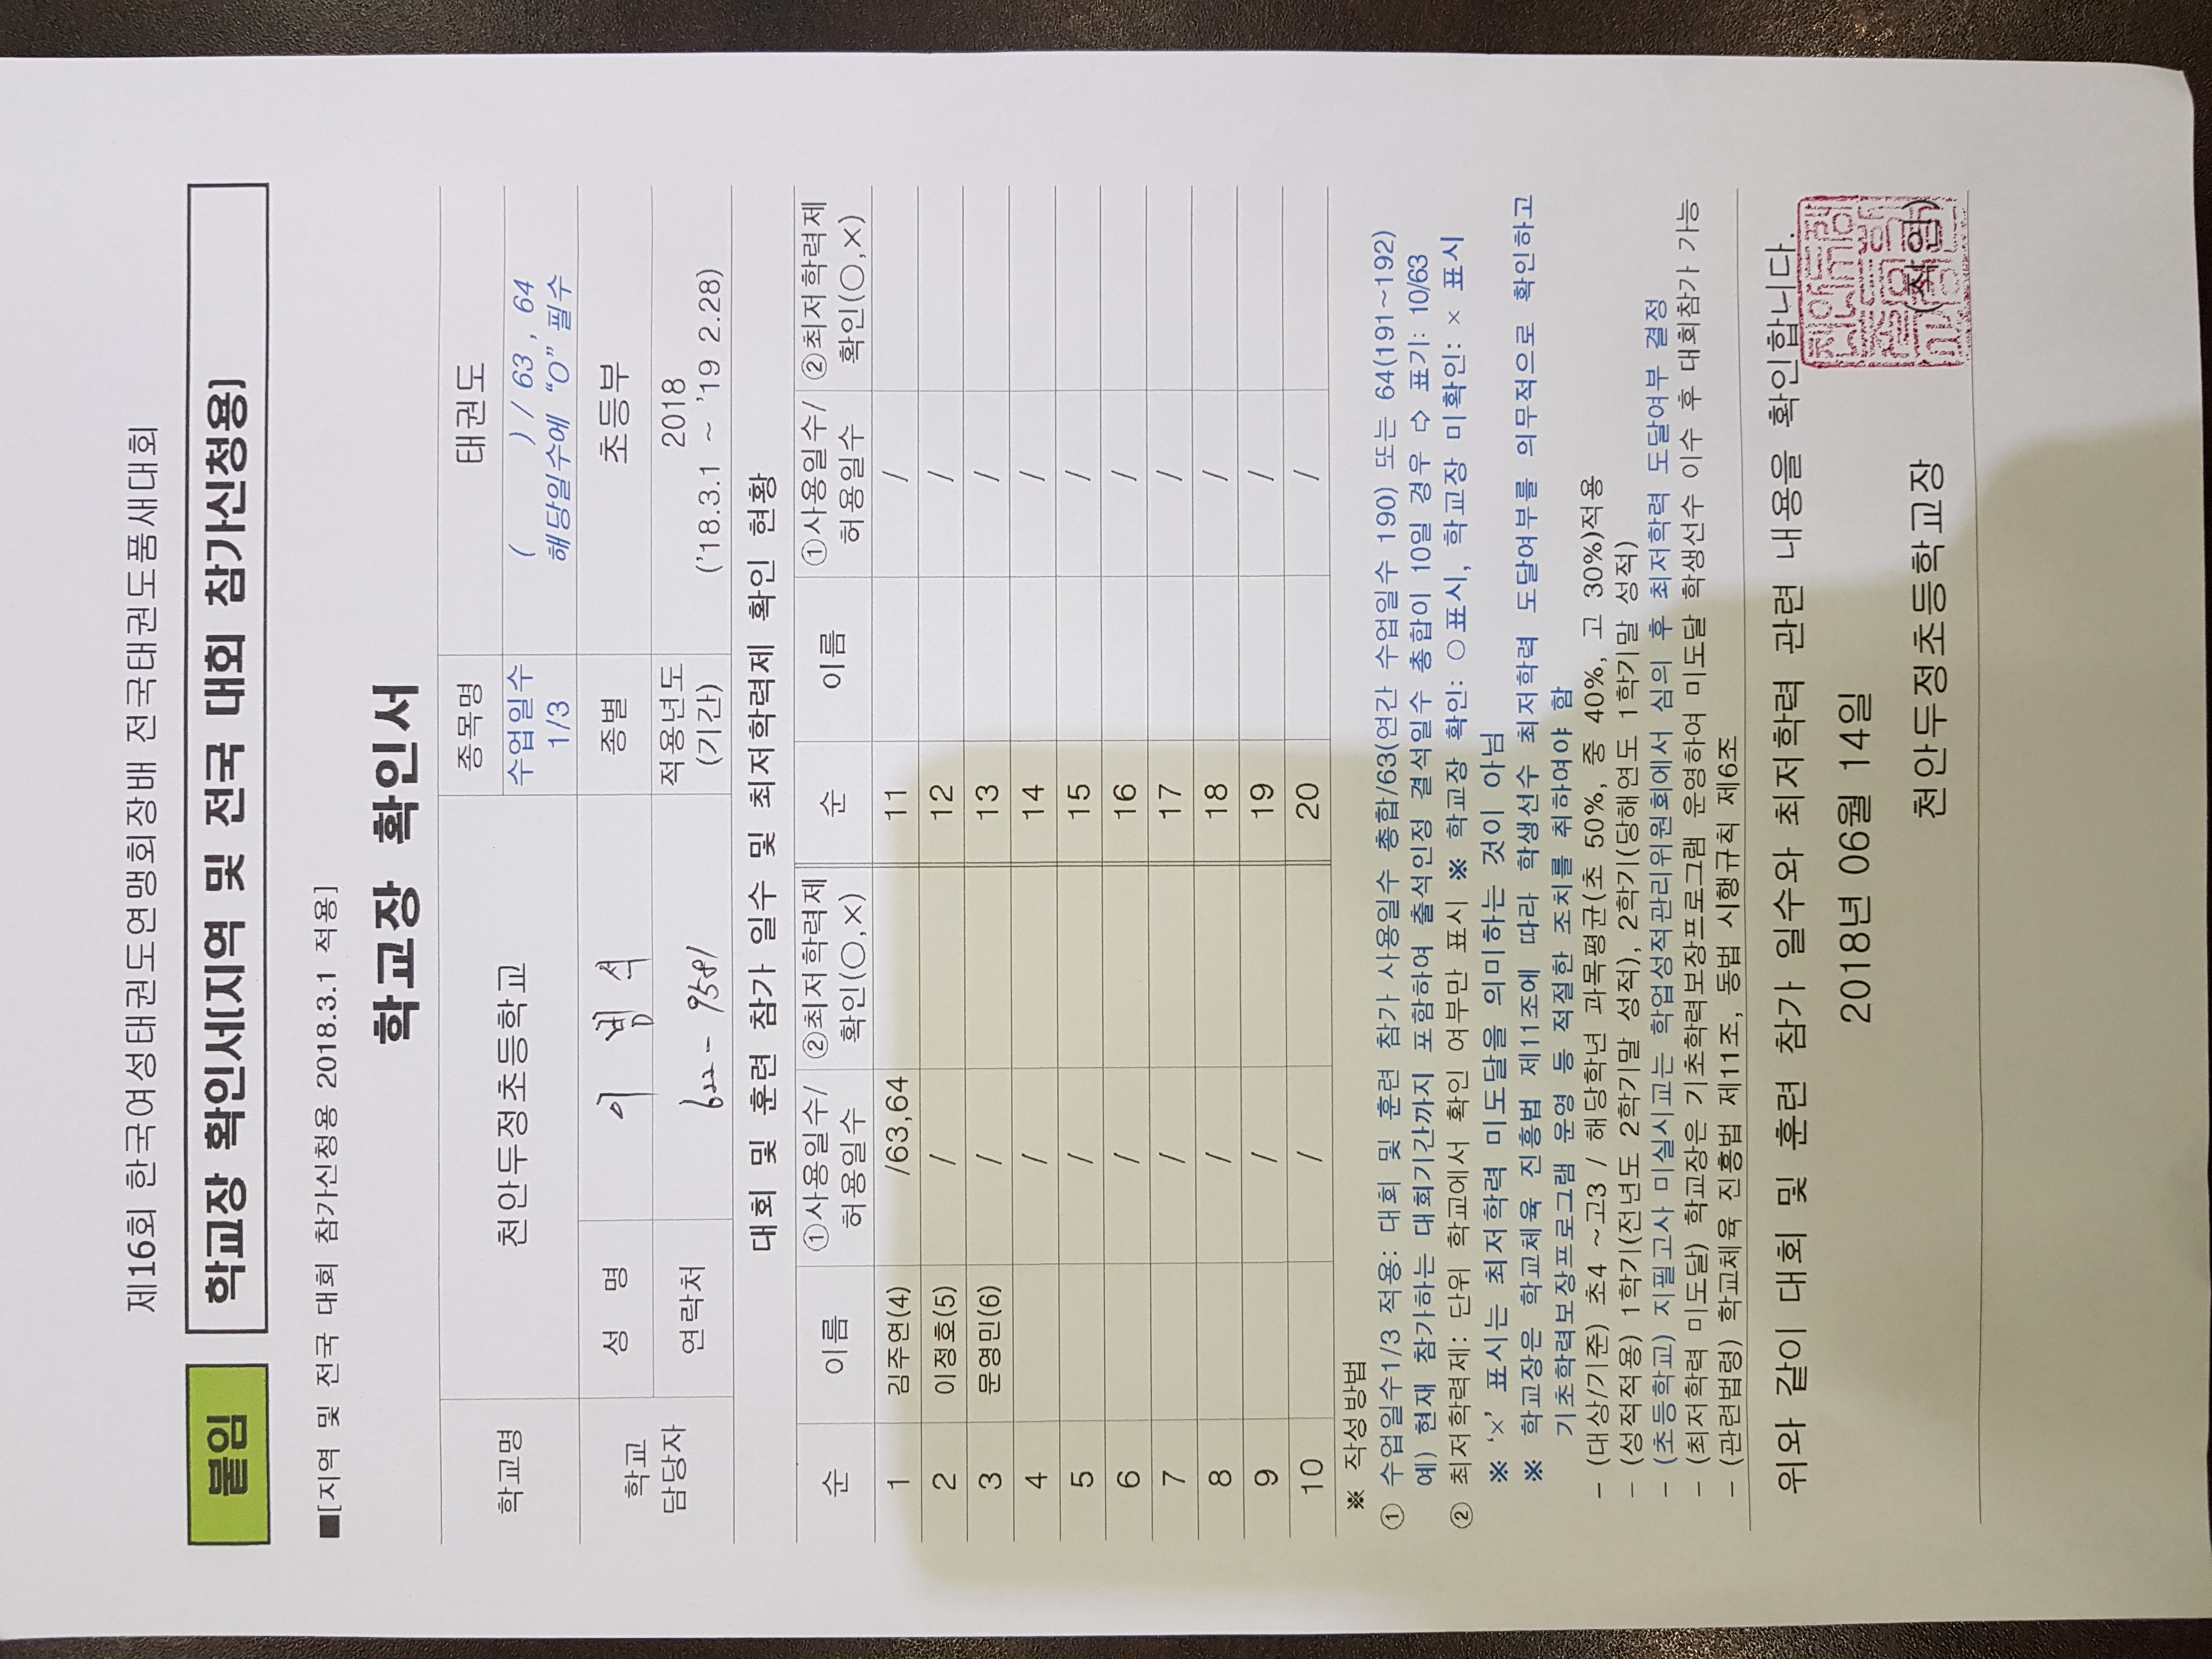 제16회 한국여성태권도연맹회장배 전국태권도품새대회
붙임 학교장 확인서(지역 및 전국 대회 참가신청용)
■[지역 및 전국 대회 참가신청용 2018.3.1 적용]
학교장 확인서
학교명 천안두정초등학교 종목명 태권도
수업일수 1/3 ( ) / 63 , 64
해당일수에 “O” 필수
학교 담당자 성 명 이 범 석 종별 초등부
연락처 622 - 9581 적용년도 (기간) 2018
('18.3.1 ~ '19 2.28)
대회 및 훈련 참가 일수 및 최저학력제 확인 현황
순 이름 ①사용일수/허용일수 ②최저학력제 확인(○,×) 순 이름 ①사용일수/허용일수 ②최저학력제 확인(○,×)
1 김주연(4) /63,64 11 /
2 이정호(5) / 12 /
3 문영민(6) / 13 /
4 / 14 /
5 / 15 /
6 / 16 /
7 / 17 /
8 / 18 /
9 / 19 /
10 / 20 /
※ 작성방법
① 수업일수1/3 적용: 대회 및 훈련 참가 사용일수 총합/63(연간 수업일수 190) 또는 64(191~192)
예) 현재 참가하는 대회기간까지 포함하여 출석인정 결석일수 총합이 10일 경우 ⇨ 표기: 10/63
② 최저학력제: 단위 학교에서 확인 여부만 표시 ※ 학교장 확인: ○표시, 학교장 미확인: × 표시
※ ‘×’ 표시는 최저학력 미도달을 의미하는 것이 아님
※ 학교장은 학교체육 진흥법 제11조에 따라 학생선수 최저학력 도달여부를 의무적으로 확인하고
기초학력보장프로그램 운영 등 적절한 조치를 취하여야 함
- (대상/기준) 초4 ~고3 / 해당학년 과목평균(초 50%, 중 40%, 고 30%)적용
- (성적적용) 1학기(전년도 2학기말 성적), 2학기(당해연도 1학기말 성적)
- (초등학교) 지필고사 미실시교는 학업성적관리위원회에서 심의 후 최저학력 도달여부 결정
- (최저학력 미도달) 학교장은 기초학력보장프로그램 운영하여 미도달 학생선수 이수 후 대회참가 가능
- (관련법령) 학교체육 진흥법 제11조, 동법 시행규칙 제6조
위와 같이 대회 및 훈련 참가 일수와 최저학력 관련 내용을 확인합니다.
2018년 06월 14일
천안두정초등학교장 (직인)